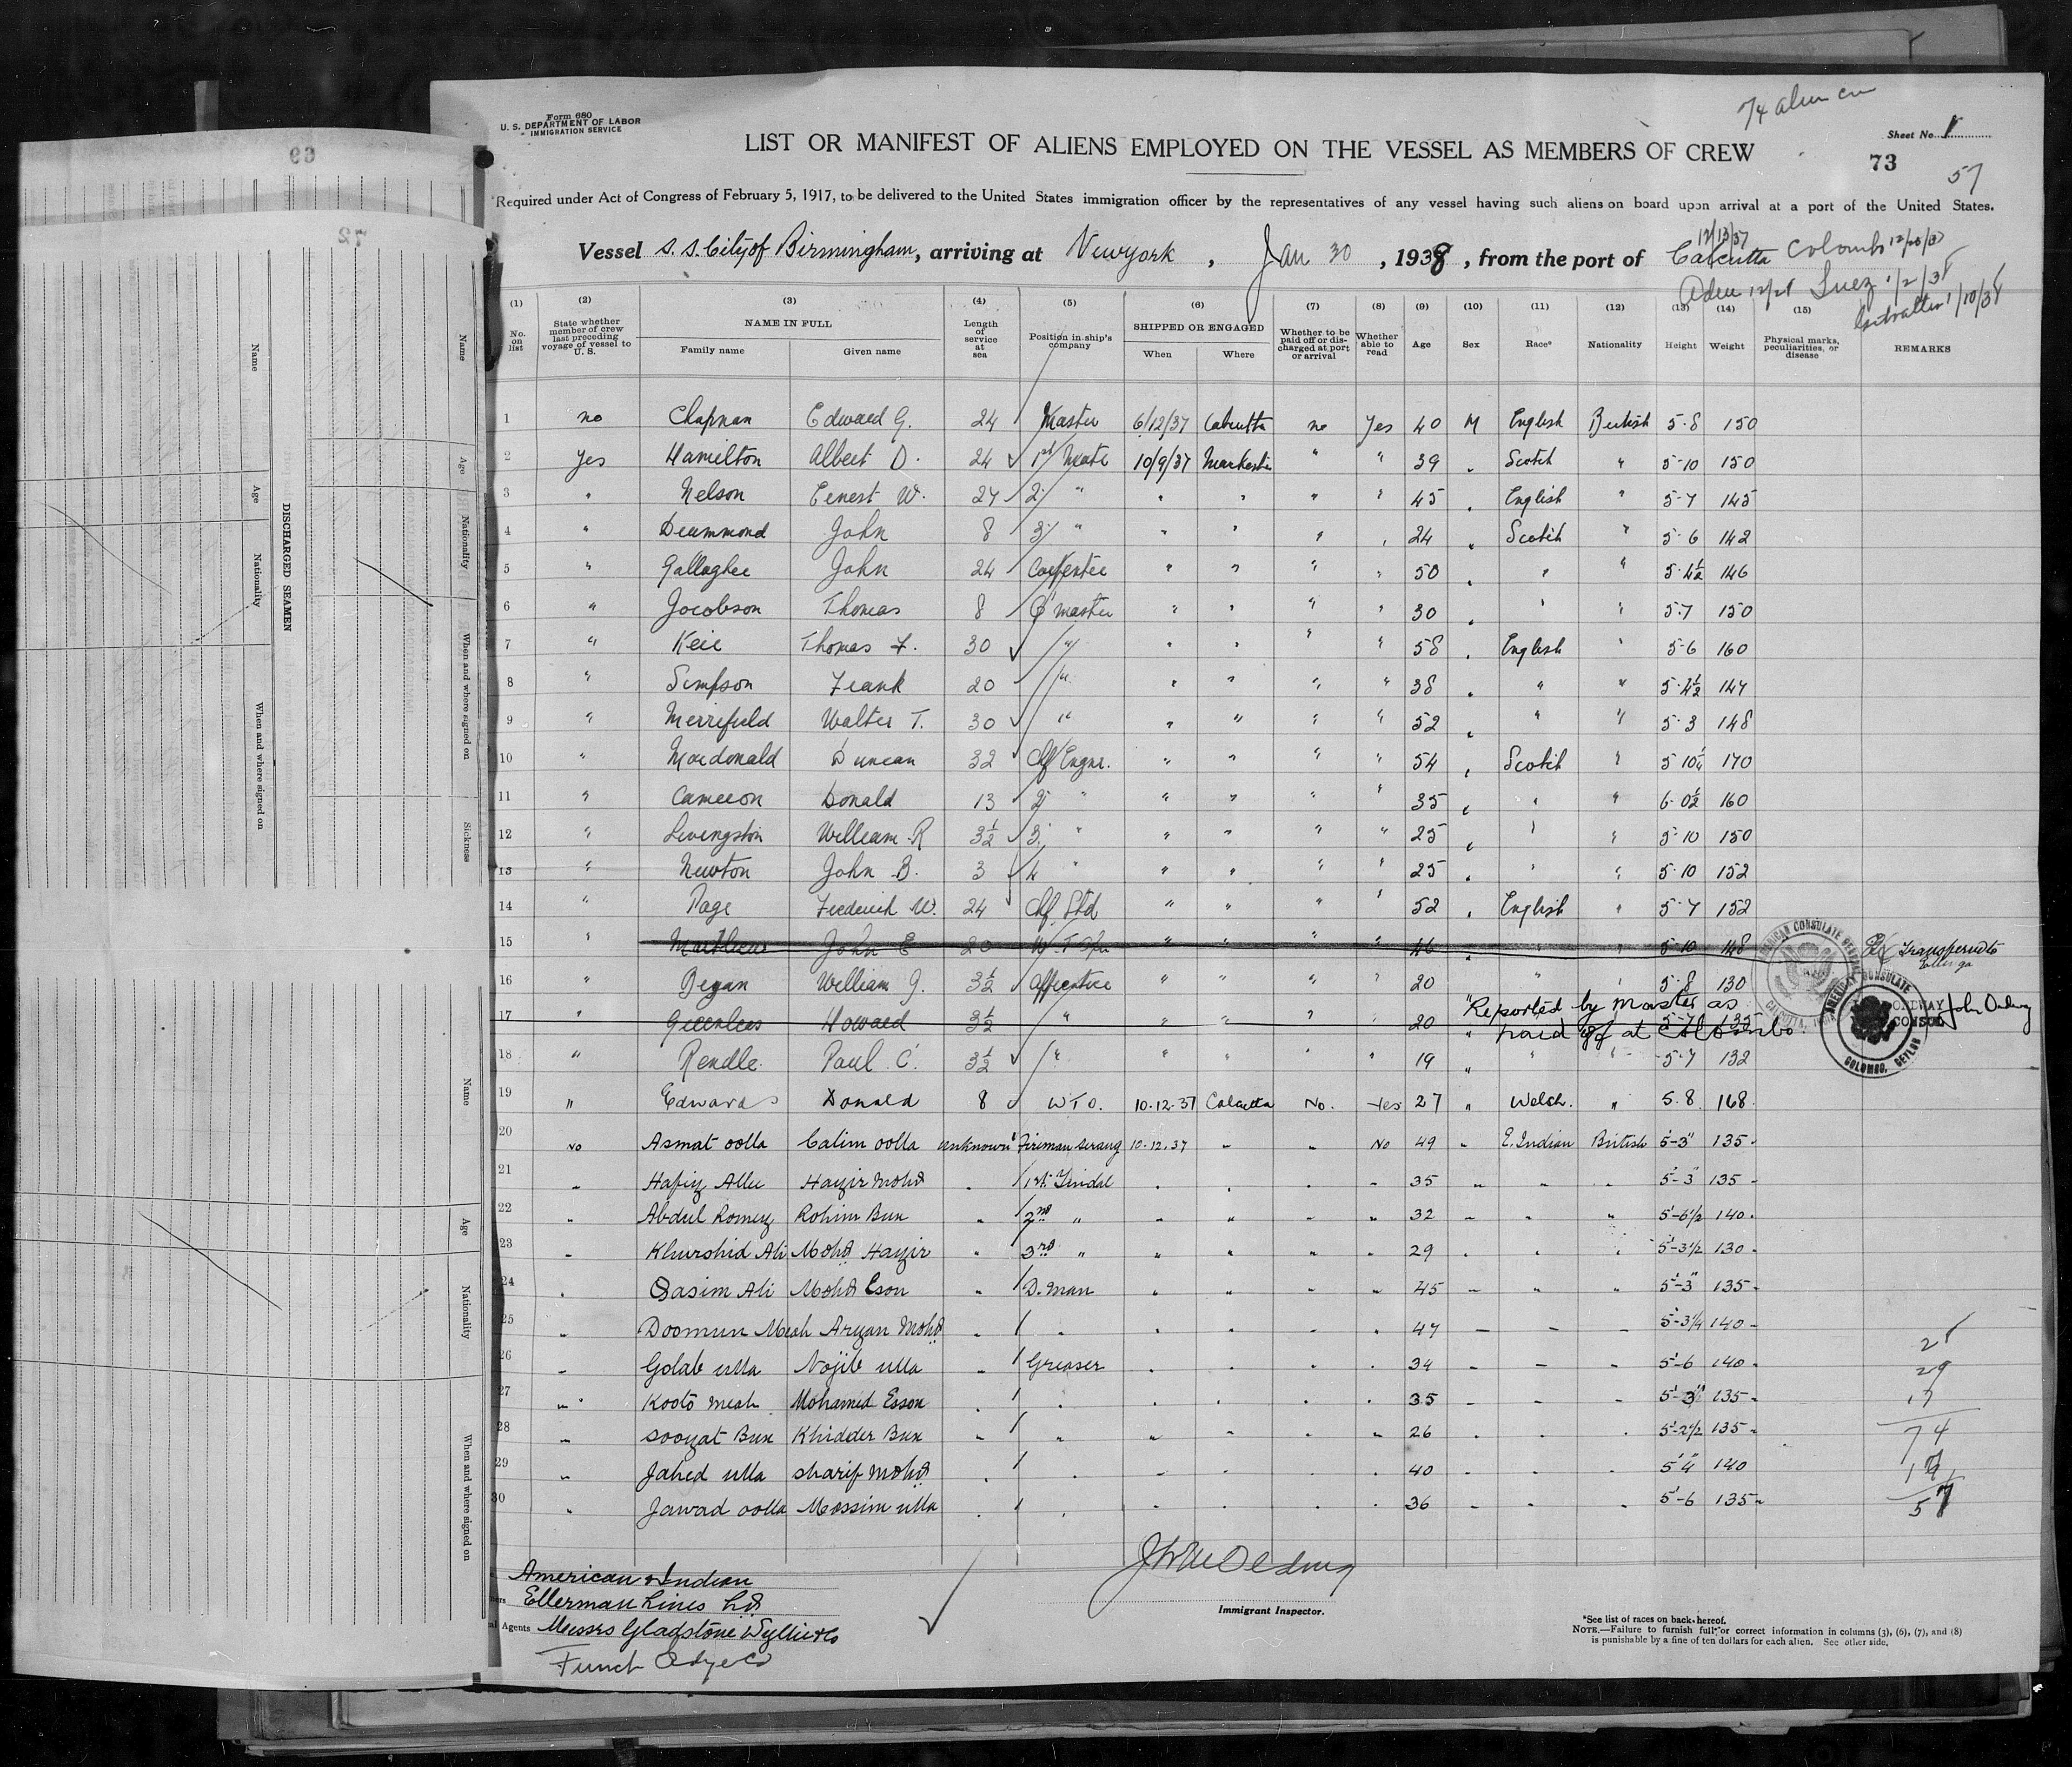 Form 680
U. S. DEPARTMENT OF LABOR
IMMIGRATION SERVICE
74 alien
Sheet No. 1
LIST OR MANIFEST OF ALIENS EMPLOYED ON THE VESSEL AS MEMBERS OF CREW
73
57
Required under Act of Congress of February 5, 1917, to be delivered to the United States immigration officer by the representatives of any vessel having such aliens on board upon arrival at a port of the United States.
12/13/37
Vessel S. S. City of Birmingham, arriving at New York, Jan 30, 1938, from the port of Calcutta Colombo
Aden 12/28 Suez 1/2/38
Gibraltar 1/10/38
(1) (2) (3) (4) (5) (6) (7) (8) (9) (10) (11) (12) (13) (14) (15)
No. on list | State whether member of crew last preceding voyage of vessel to U. S. | NAME IN FULL | Family name | Given name | Length of service at sea | Position in ship's company | SHIPPED OR ENGAGED | When | Where | Whether to be paid off or discharged at port of arrival | Whether able to read | Age | Sex | Race* | Nationality | Height | Weight | Physical marks, peculiarities, or disease | REMARKS
1 no Chapman Edward G. 24 Master 6/12/37 Calcutta no Yes 40 M English British 5-8 150
2 Yes Hamilton Albert D. 24 1st Mate 10/9/37 " " 39 " Scotch " 5-10 150
3 " Nelson Ernest W. 27 2 " " " " " 45 " English " 5-7 145
4 " Drummond John 8 3 " " " " " 24 " Scotch " 5-6 142
5 " Gallagher John 24 Carpenter " " " " 50 " " " 5-4½ 146
6 " Jacobson Thomas 8 Q'master " " " " 30 " " " 5-7 150
7 " Keir Thomas F. 30 " " " " " 58 " English " 5-6 160
8 " Simpson Frank 20 " " " " " 38 " " " 5-4½ 147
9 " Merrifield Walter T. 30 " " " " " 52 " " " 5-3 148
10 " Macdonald Duncan 32 Chf Engnr. " " " " 54 " Scotch " 5 10¼ 170
11 " Cameron Donald 13 2 " " " " " 35 " " " 6-0½ 160
12 " Livingston William R 3½ 3 " " " " " 25 " " " 5-10 150
13 " Newton John B. 3 4 " " " " " 25 " " " 5-10 152
14 " Page Frederick W. 24 Chf Std " " " " 52 " English " 5-7 152
15 " Matthews John E 20 W. T. Opr " " " " 46 " " " 5-10 148 Transferred to
16 " William J. 3½ Apprentice " " " " 20 " " 5-8 130
17 " Greenlees Howard 3½ " " " " " 20 " 5-7 135
Reported by Master as
paid off at Colombo.
18 " Rendle Paul C. 3½ " " " " " 19 " " " 5-7 132
19 " Edwards Donald 8 W T O. 10.12.37 Calcutta No. Yes 27 " Welch. " 5.8. 168
20 No Asmat oolla Calim oolla unknown Fireman Serang 10.12.37 " " No 49 " E. Indian British 5'-3" 135
21 " Hafiz Allee Hayir Mohd " 1st Tindal " " " " 35 " " " 5'-3" 135
22 " Abdul Romez Rohim Bux " 2nd " " " " " 32 " " " 5'-6½ 140
23 " Khurshid Ali Mohd Hayir " 3rd " " " " " 29 " " " 5'-3½ 130
24 " Qasim Ali Mohd Eson " D. man " " " " 45 " " " 5'-3" 135
25 " Doomun Meah Aryan Mohd " " " " " " 47 " " " 5'-3¼ 140
26 " Golab ulla Nojib ulla " Greaser " " " " 34 " " " 5'-6 140
27 " Kooto meah Mohamed Esson " " " " " " 35 " " " 5'-3" 135
28 " Sooyat Bux Khidder Bux " " " " " " 26 " " " 5'-2½ 135
29 " Jahed ulla Sharif Mohd " " " " " " 40 " " " 5'4" 140
30 " Jawad oolla Mossim ulla " " " " " " 36 " " " 5'-6 135
29
17
74
57
AMERICAN CONSULATE GENERAL
CALCUTTA, INDIA
AMERICAN CONSULATE
COLOMBO, CEYLON
ORDWAY
CONSUL
John Ordway
American & Indian
Ellerman Lines Ltd
Agents Messrs Gladstone Wyllie & Co
Funch Edye Co
Immigrant Inspector.
*See list of races on back hereof.
NOTE.—Failure to furnish full or correct information in columns (3), (6), (7), and (8)
is punishable by a fine of ten dollars for each alien. See other side.
63
72
DISCHARGED SEAMEN
Name
Age
Nationality
When and where signed on
Name
Age
Nationality
When and where signed on
Sickness
Name
Age
Nationality
When and where signed on